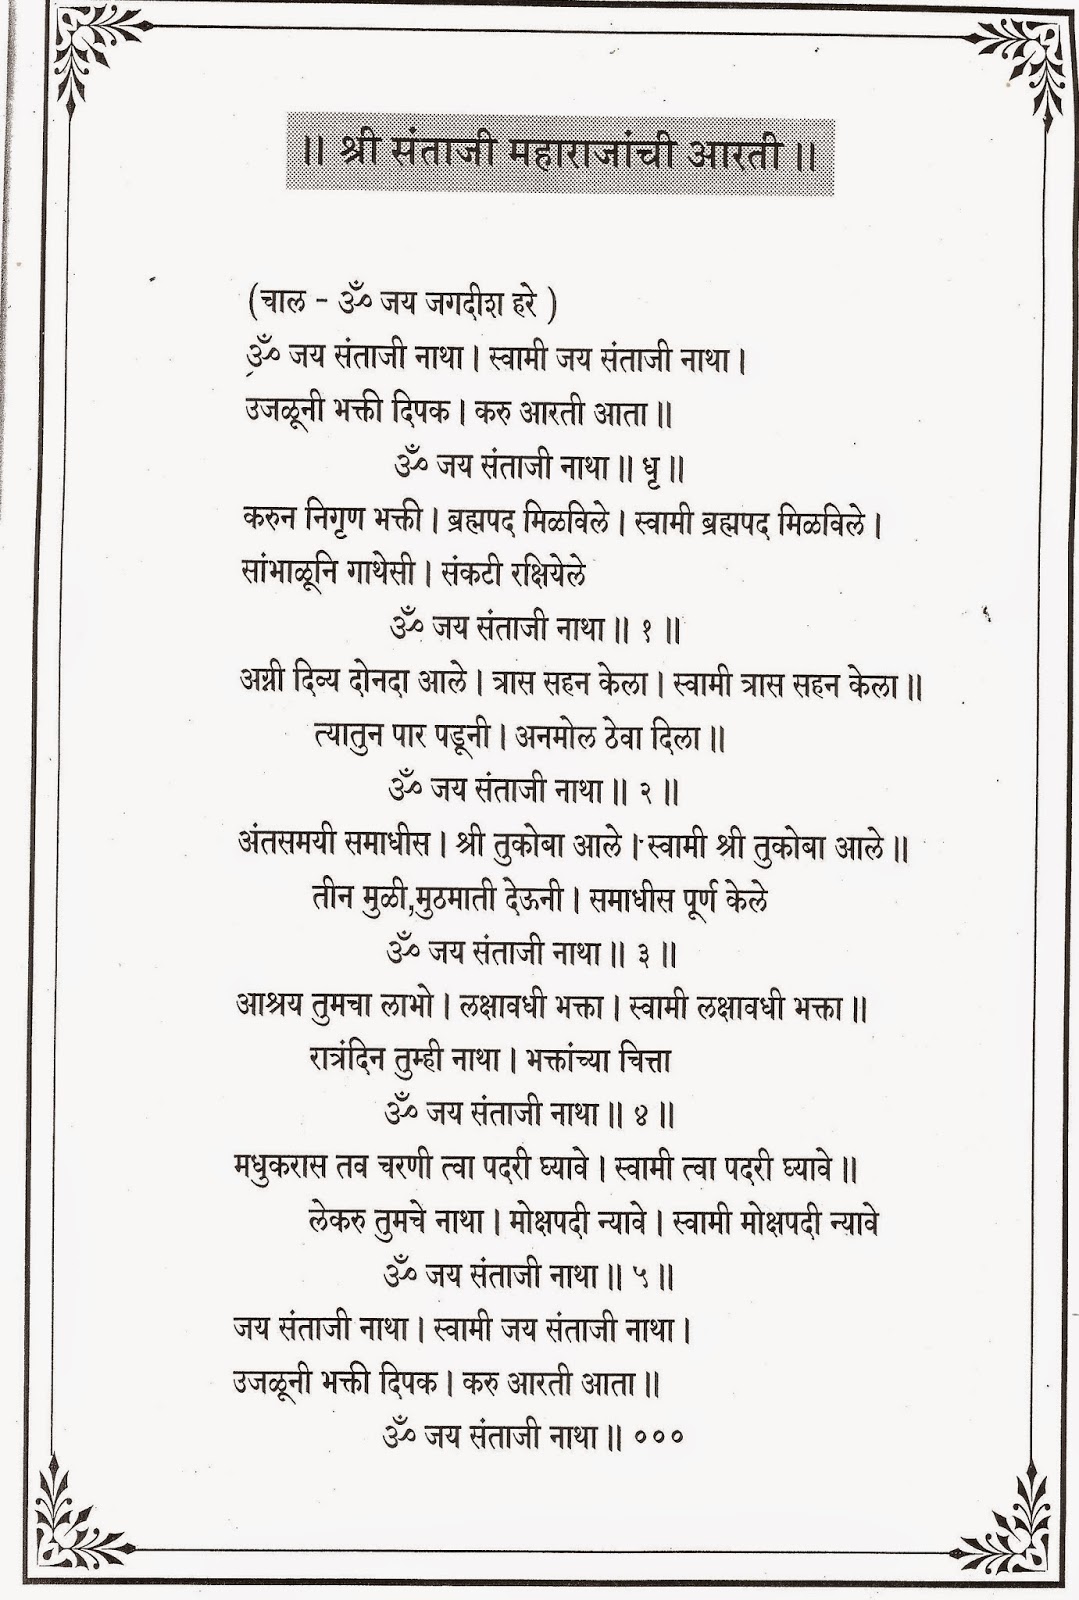 ॥ श्री संताजी महाराजांची आरती ॥
(चाल - ॐ जय जगदीश हरे )
ॐ जय संताजी नाथा । स्वामी जय संताजी नाथा ।
उजळूनी भक्ती दिपक । करु आरती आता ॥
ॐ जय संताजी नाथा ॥ धृ ॥
करुन निगृण भक्ती । ब्रह्मपद मिळविले । स्वामी ब्रह्मपद मिळविले ।
सांभाळूनि गाथेसी । संकटी रक्षियेले
ॐ जय संताजी नाथा ॥ १ ॥
अग्नी दिव्य दोनदा आले । त्रास सहन केला । स्वामी त्रास सहन केला ॥
त्यातुन पार पडूनी । अनमोल ठेवा दिला ॥
ॐ जय संताजी नाथा ॥ २ ॥
अंतसमयी समाधीस । श्री तुकोबा आले । स्वामी श्री तुकोबा आले ॥
तीन मुळी,मुठमाती देऊनी । समाधीस पूर्ण केले
ॐ जय संताजी नाथा ॥ ३ ॥
आश्रय तुमचा लाभो । लक्षावधी भक्ता । स्वामी लक्षावधी भक्ता ॥
रात्रंदिन तुम्ही नाथा । भक्तांच्या चित्ता
ॐ जय संताजी नाथा ॥ ४ ॥
मधुकरास तव चरणी त्वा पदरी घ्यावे । स्वामी त्वा पदरी घ्यावे ॥
लेकरु तुमचे नाथा । मोक्षपदी न्यावे । स्वामी मोक्षपदी न्यावे
ॐ जय संताजी नाथा ॥ ५ ॥
जय संताजी नाथा । स्वामी जय संताजी नाथा ।
उजळूनी भक्ती दिपक । करु आरती आता ॥
ॐ जय संताजी नाथा ॥ ०००